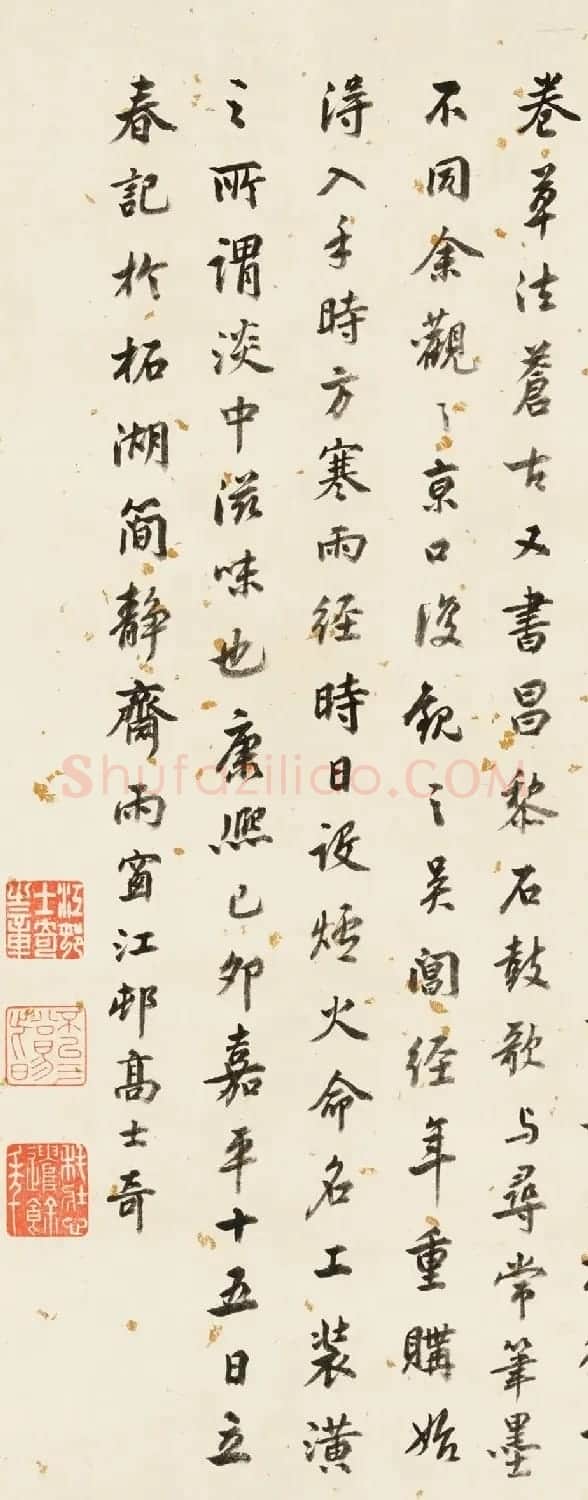 卷草法蒼古又書昌黎石鼓歌与尋常筆墨
不同余觀之京口後觀之吳閶經年重購始
得入手時方寒雨經時日設爐火命名工装潢
之所謂淡中滋味也康熙己卯嘉平十五日立
春記於柘湖简靜齋雨窗江邨髙士奇
ShufaZiliao.COM